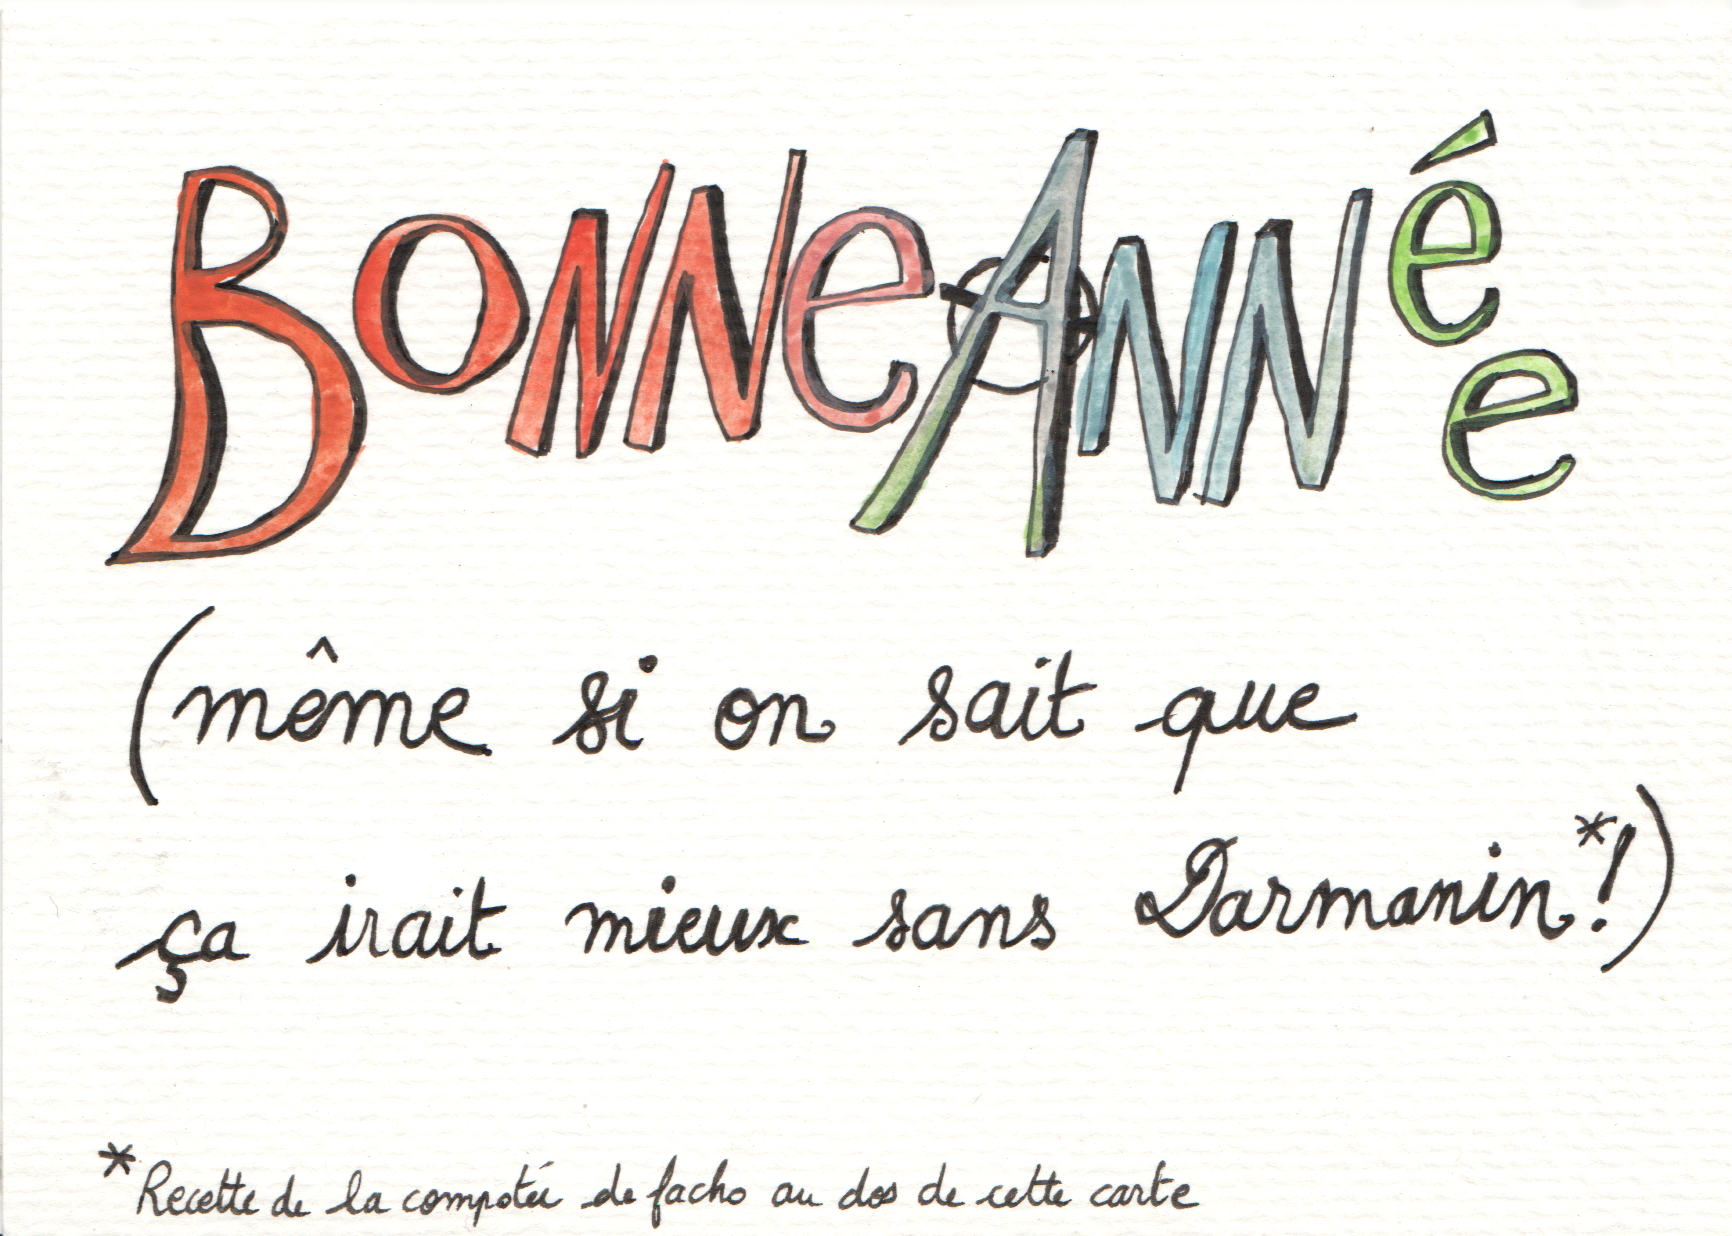 BONNE ANNée
(même si on sait que
ça irait mieux sans Darmanin*!)
*Recette de la compotée de facho au dos de cette carte